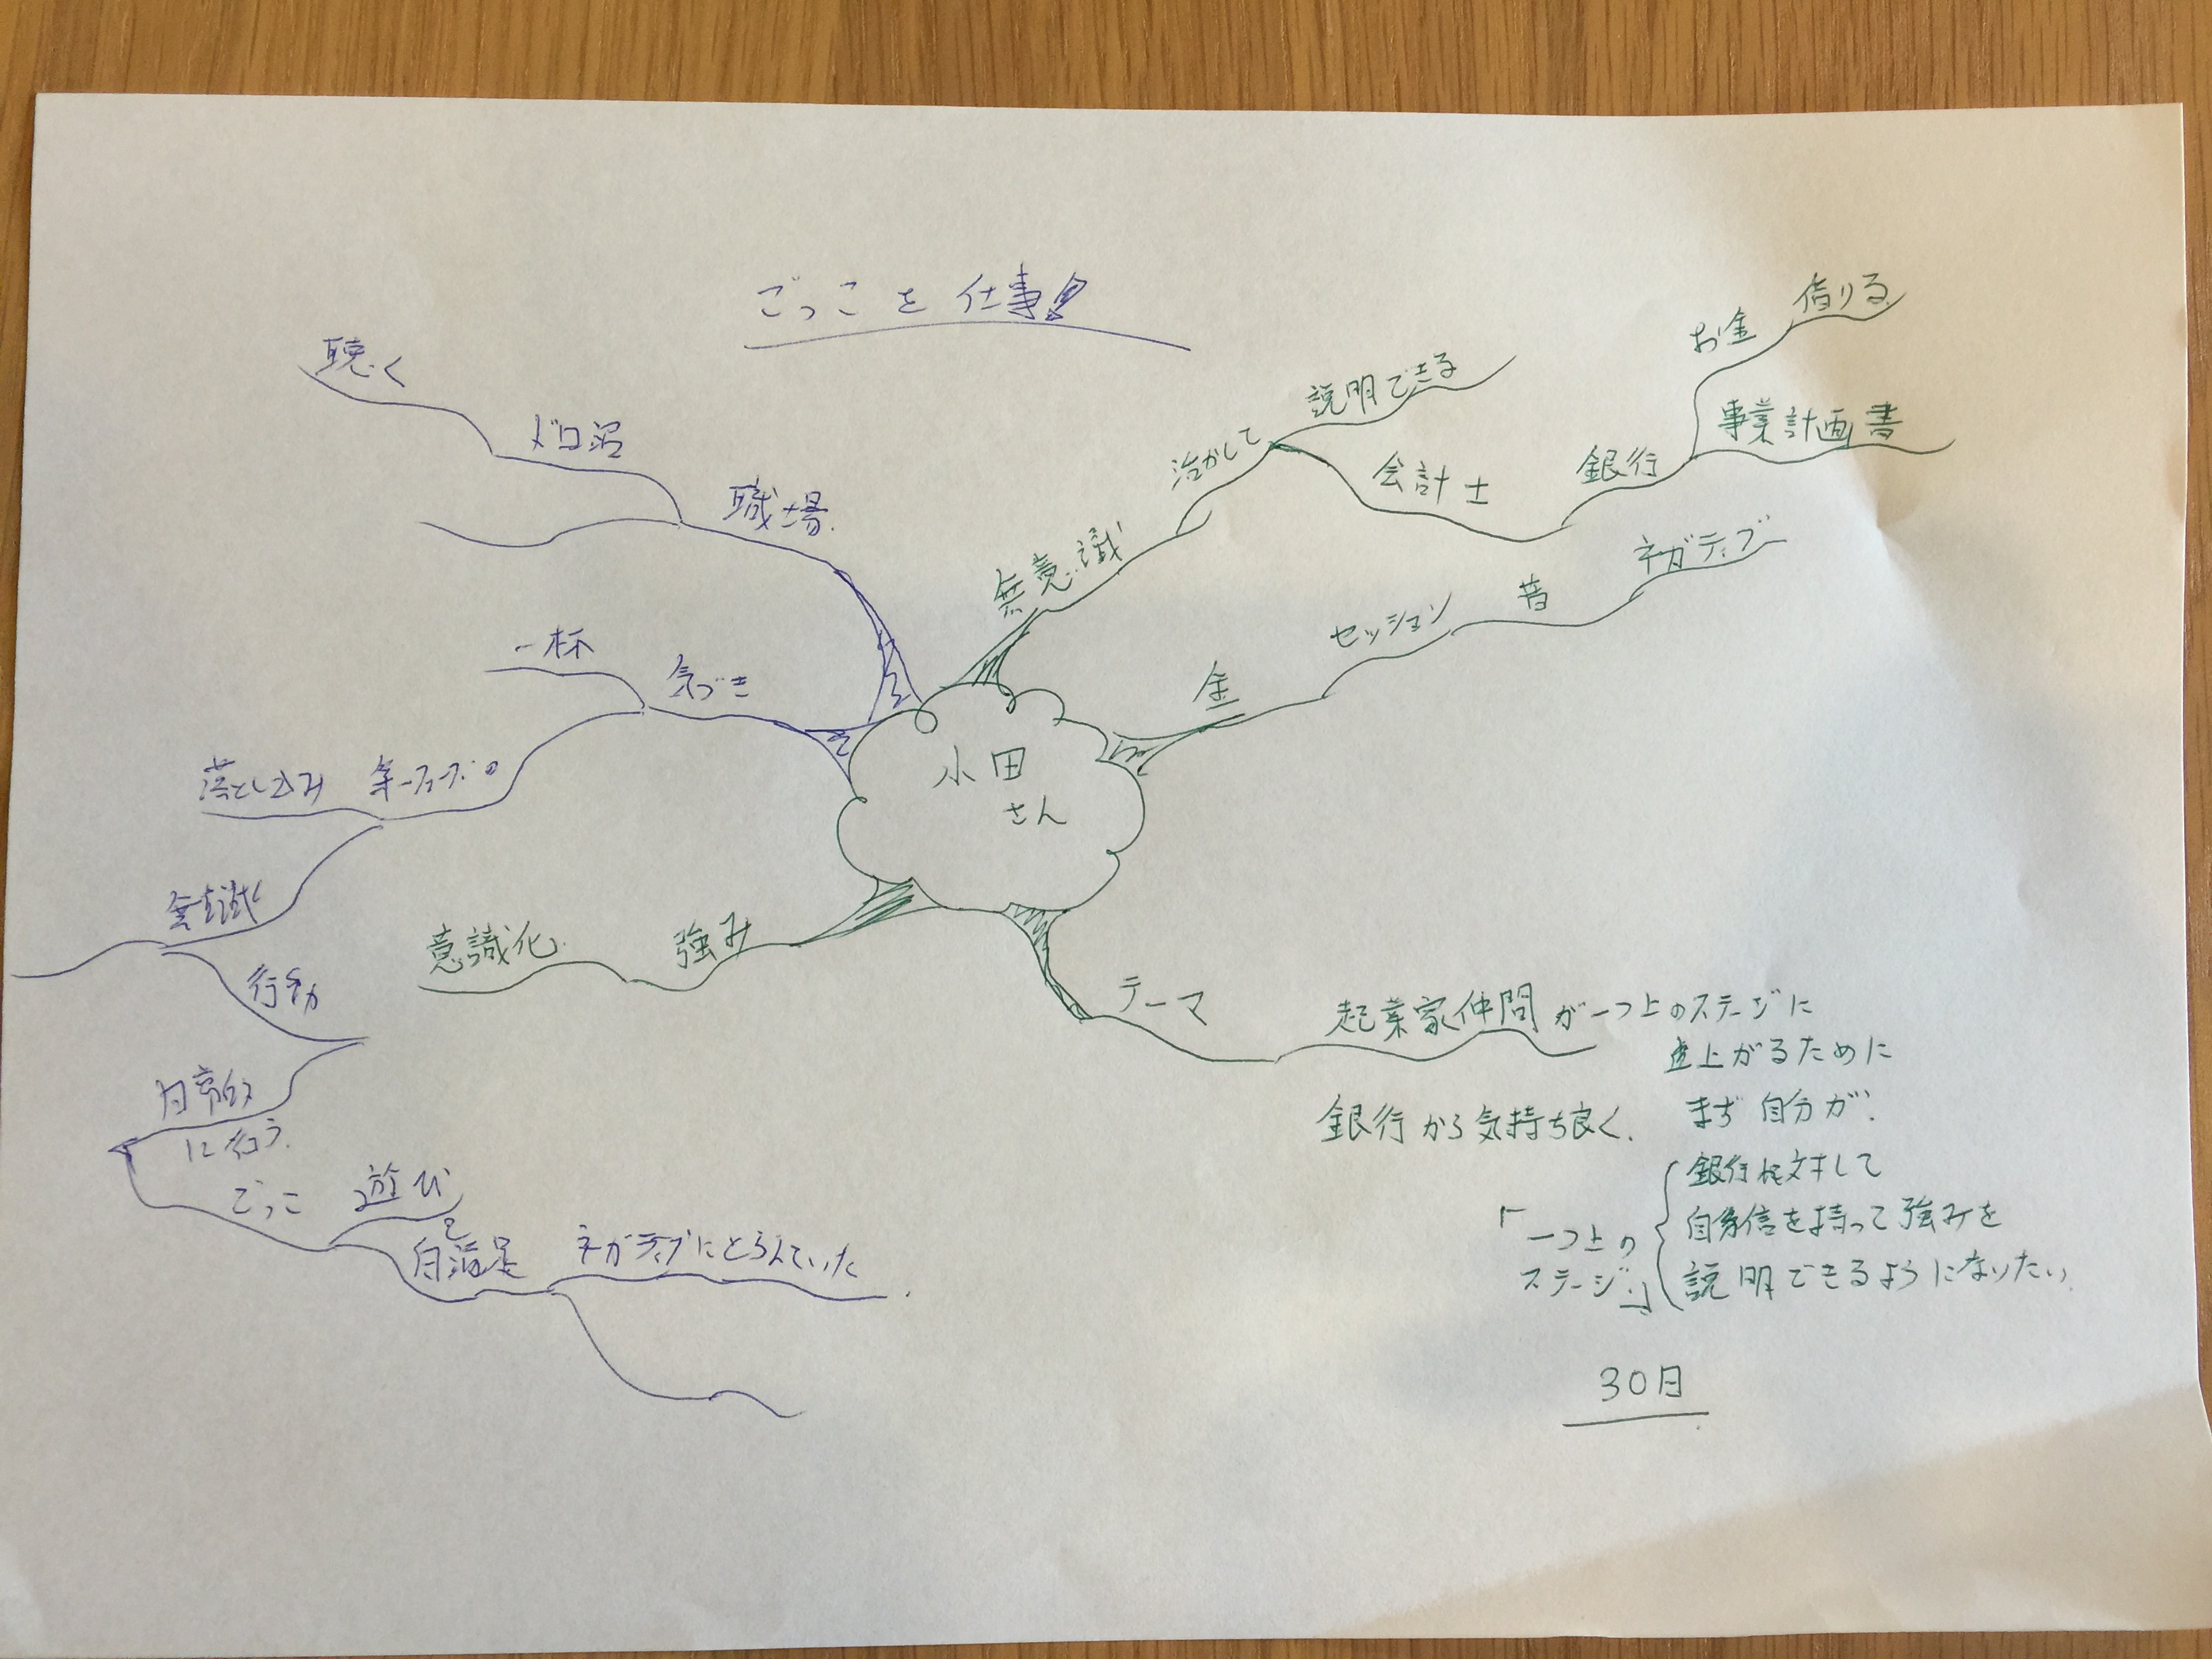 ごっこを仕事!
聴く
ドロ沼
職場
一杯
気づき
落とし込み
無意識
行動
日常的
に行う
ごっこ
遊び
と
自満足
ネガティブにとらえていた
意識化
強み
小田
さん
無意識
活かして
説明できる
会計士
銀行
お金
借りる
事業計画書
金
セッション
昔
ネガティブ
テーマ
起業家仲間が一つ上のステージに
上がるために
まず自分が
銀行から気持ち良く
「一つ上の
ステージ」
銀行に対して
自信を持って強みを
説明できるようになりたい
30日